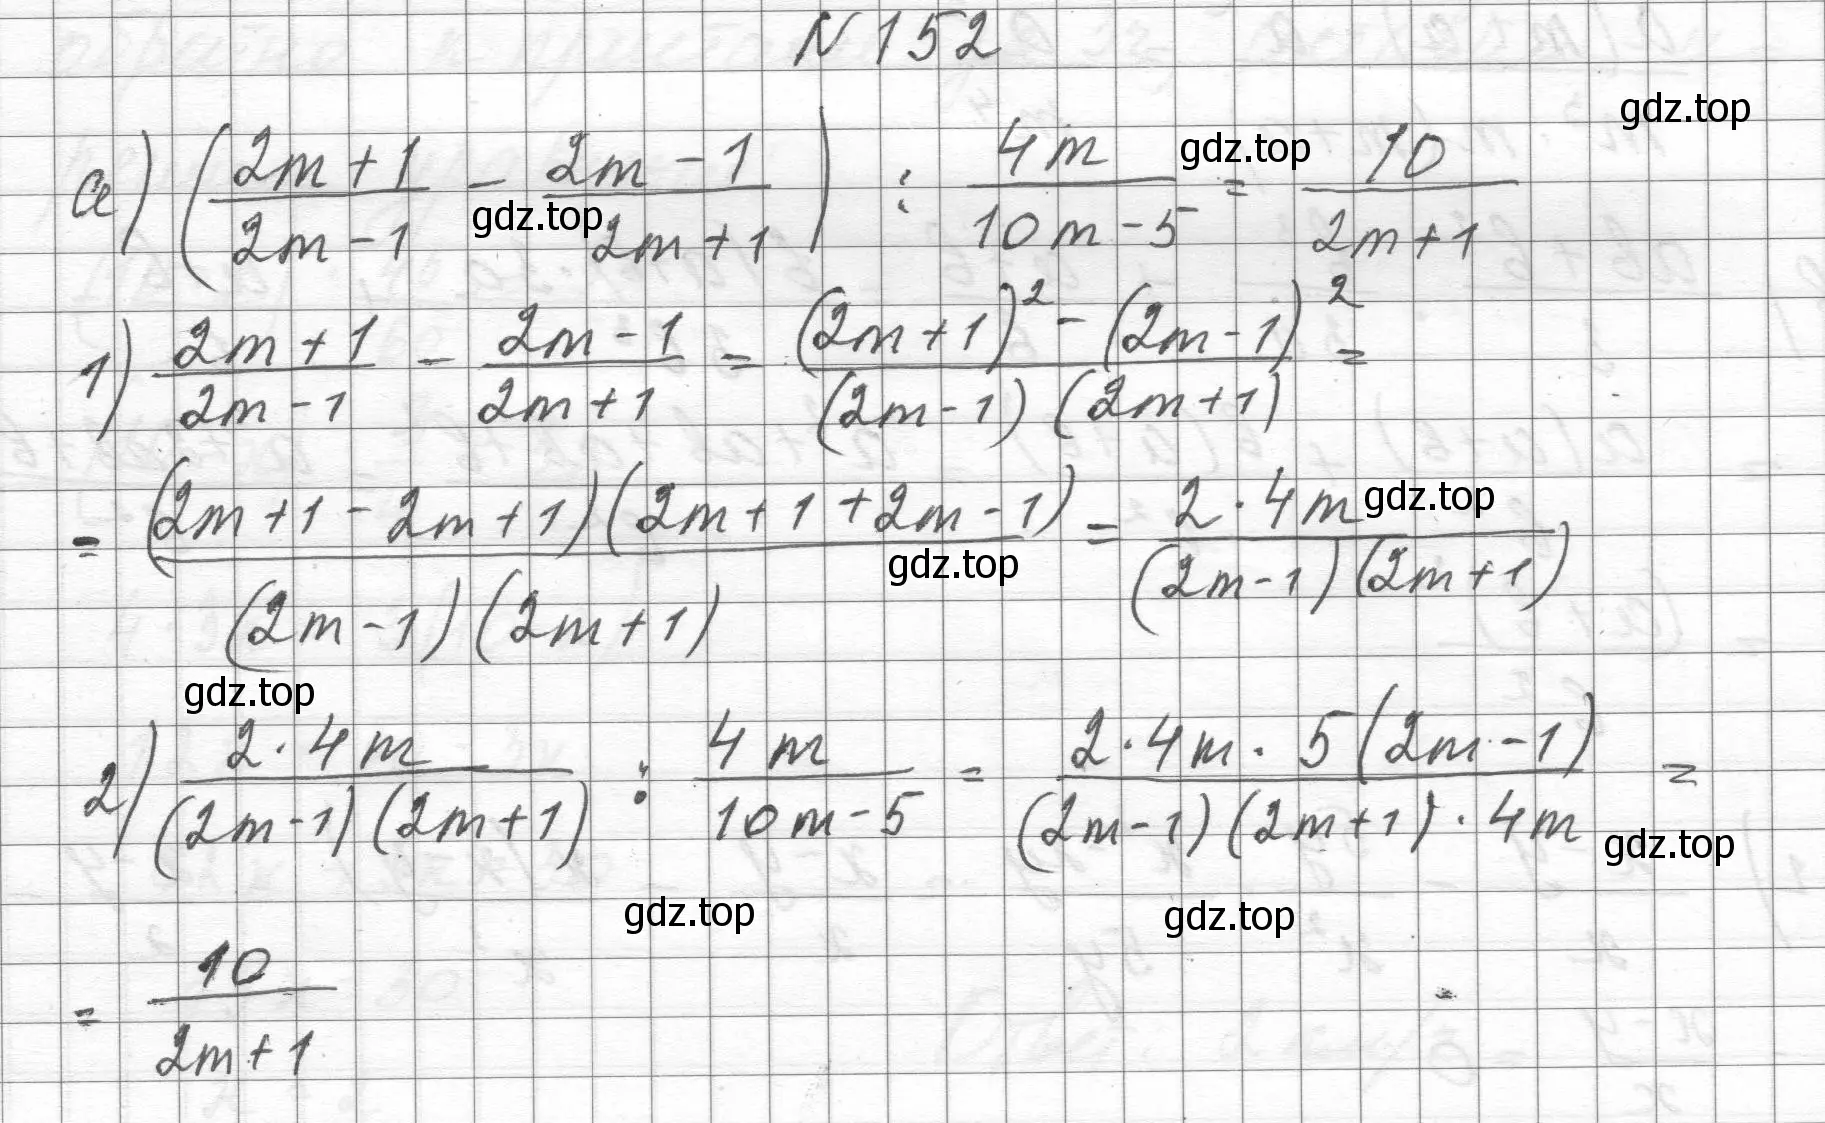 N 152
а) ( (2m+1)/(2m-1) - (2m-1)/(2m+1) ) : 4m/(10m-5) = 10/(2m+1)
1) (2m+1)/(2m-1) - (2m-1)/(2m+1) = ((2m+1)² - (2m-1)²)/((2m-1)(2m+1)) =
= ((2m+1-2m+1)(2m+1+2m-1))/((2m-1)(2m+1)) = (2·4m)/((2m-1)(2m+1))
2) (2·4m)/((2m-1)(2m+1)) : 4m/(10m-5) = (2·4m·5(2m-1))/((2m-1)(2m+1)·4m) =
= 10/(2m+1)
gdz.top
gdz.top
gdz.top
gdz.top
gdz.top
gdz.top
gdz.top
gdz.top
gdz.top